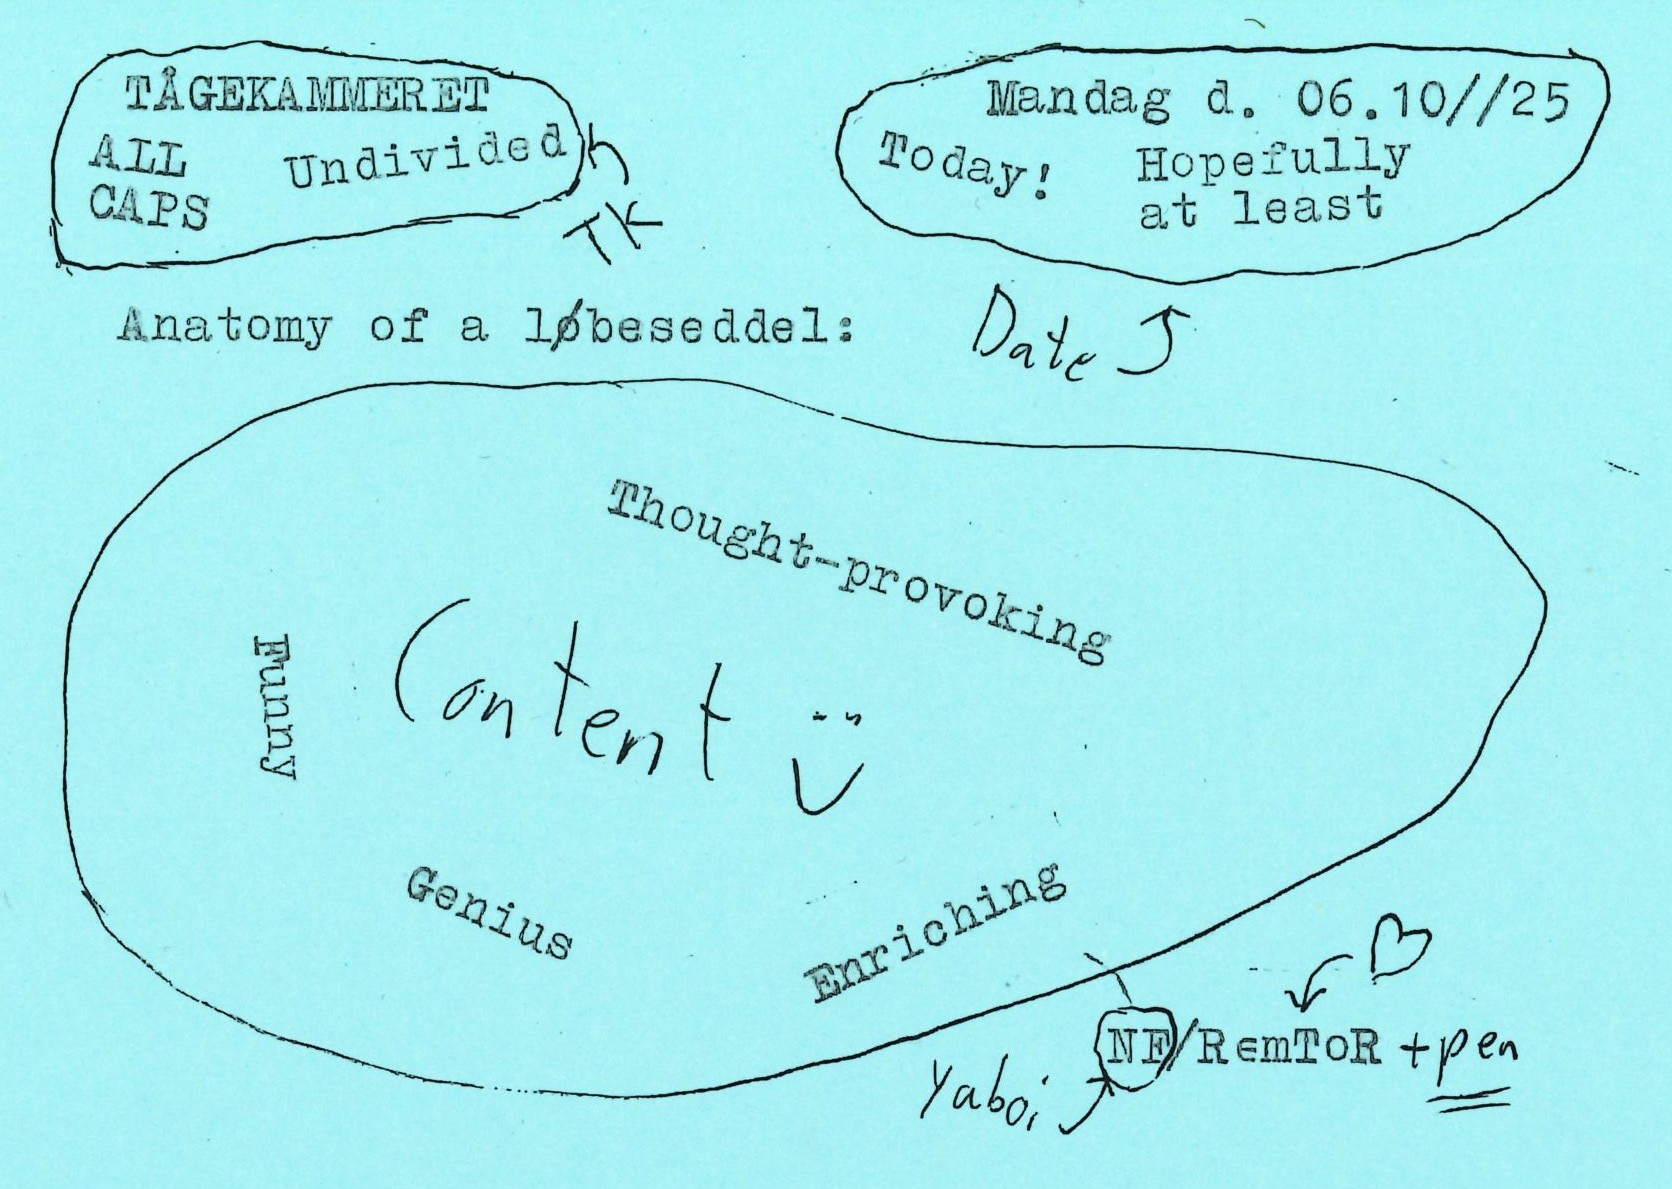 TÅGEKAMMERET
ALL CAPS
Undivided
TK
Mandag d. 06.10//25
Today!
Hopefully at least
Date
Anatomy of a løbeseddel:
Thought-provoking
Funny
Content
Genius
Enriching
NF/RemToR + pen
Yaboi